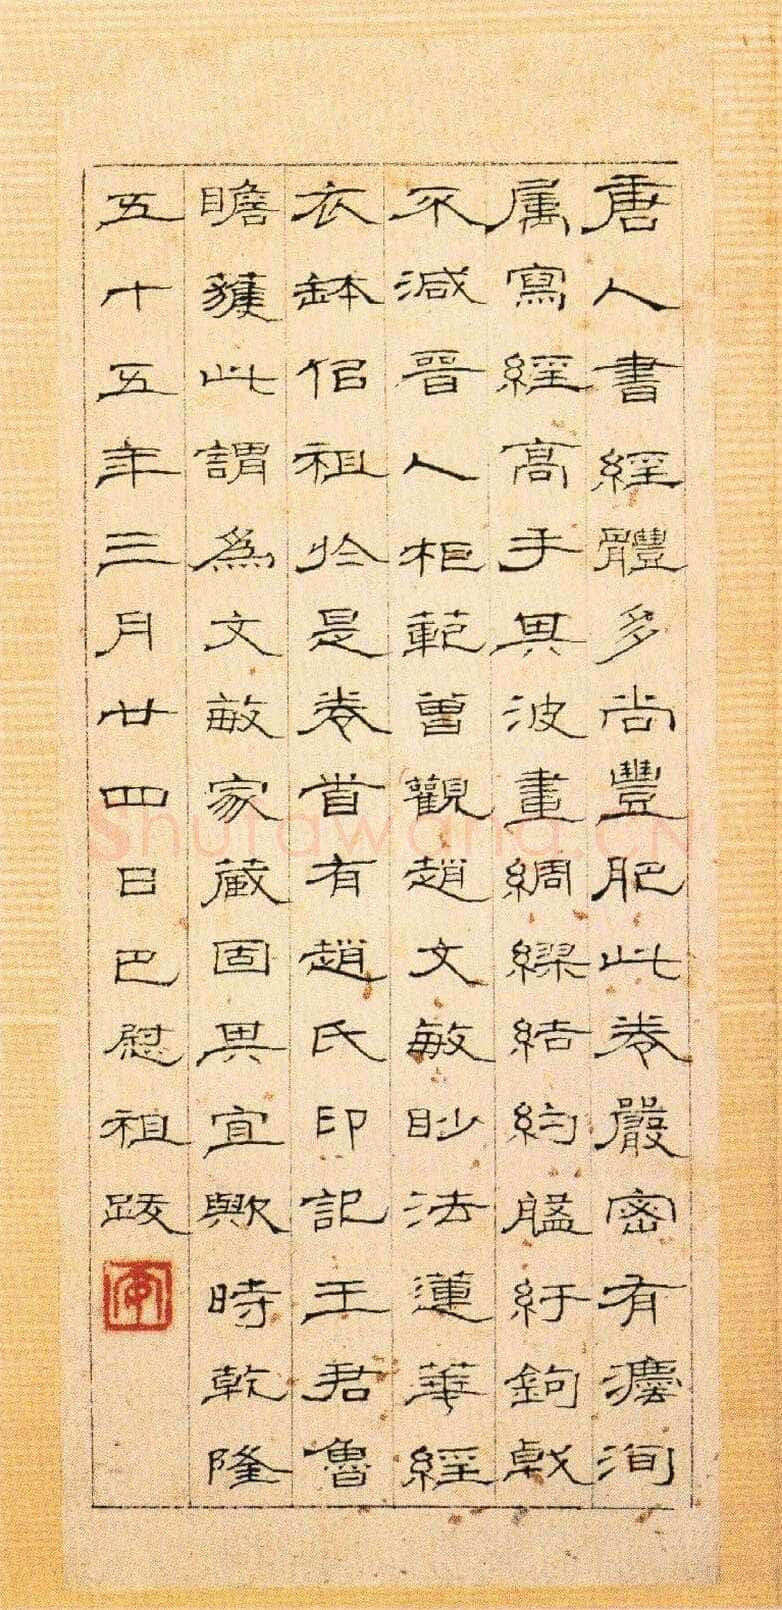 唐人書經體多尚豐肥此卷嚴密有灋洵
属寫經高手其波畫綢繆結約紆鉤戟
不減晉人柜範曾觀趙文敏眇法蓮華經
衣缽佀祖於是卷首有趙氏印記王君魯
瞻獲此謂為文敏家藏固其宜歟時乾隆
五十五年三月廿四日巴慰祖跋
Shufawang.CN